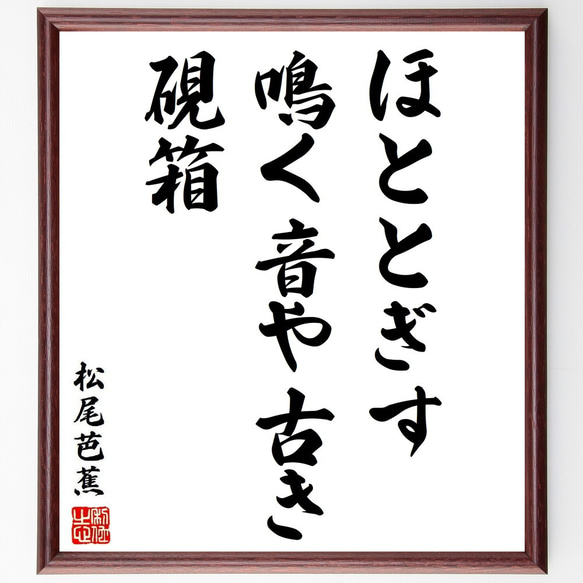 ほととぎす
鳴く音や古き
硯箱
松尾芭蕉